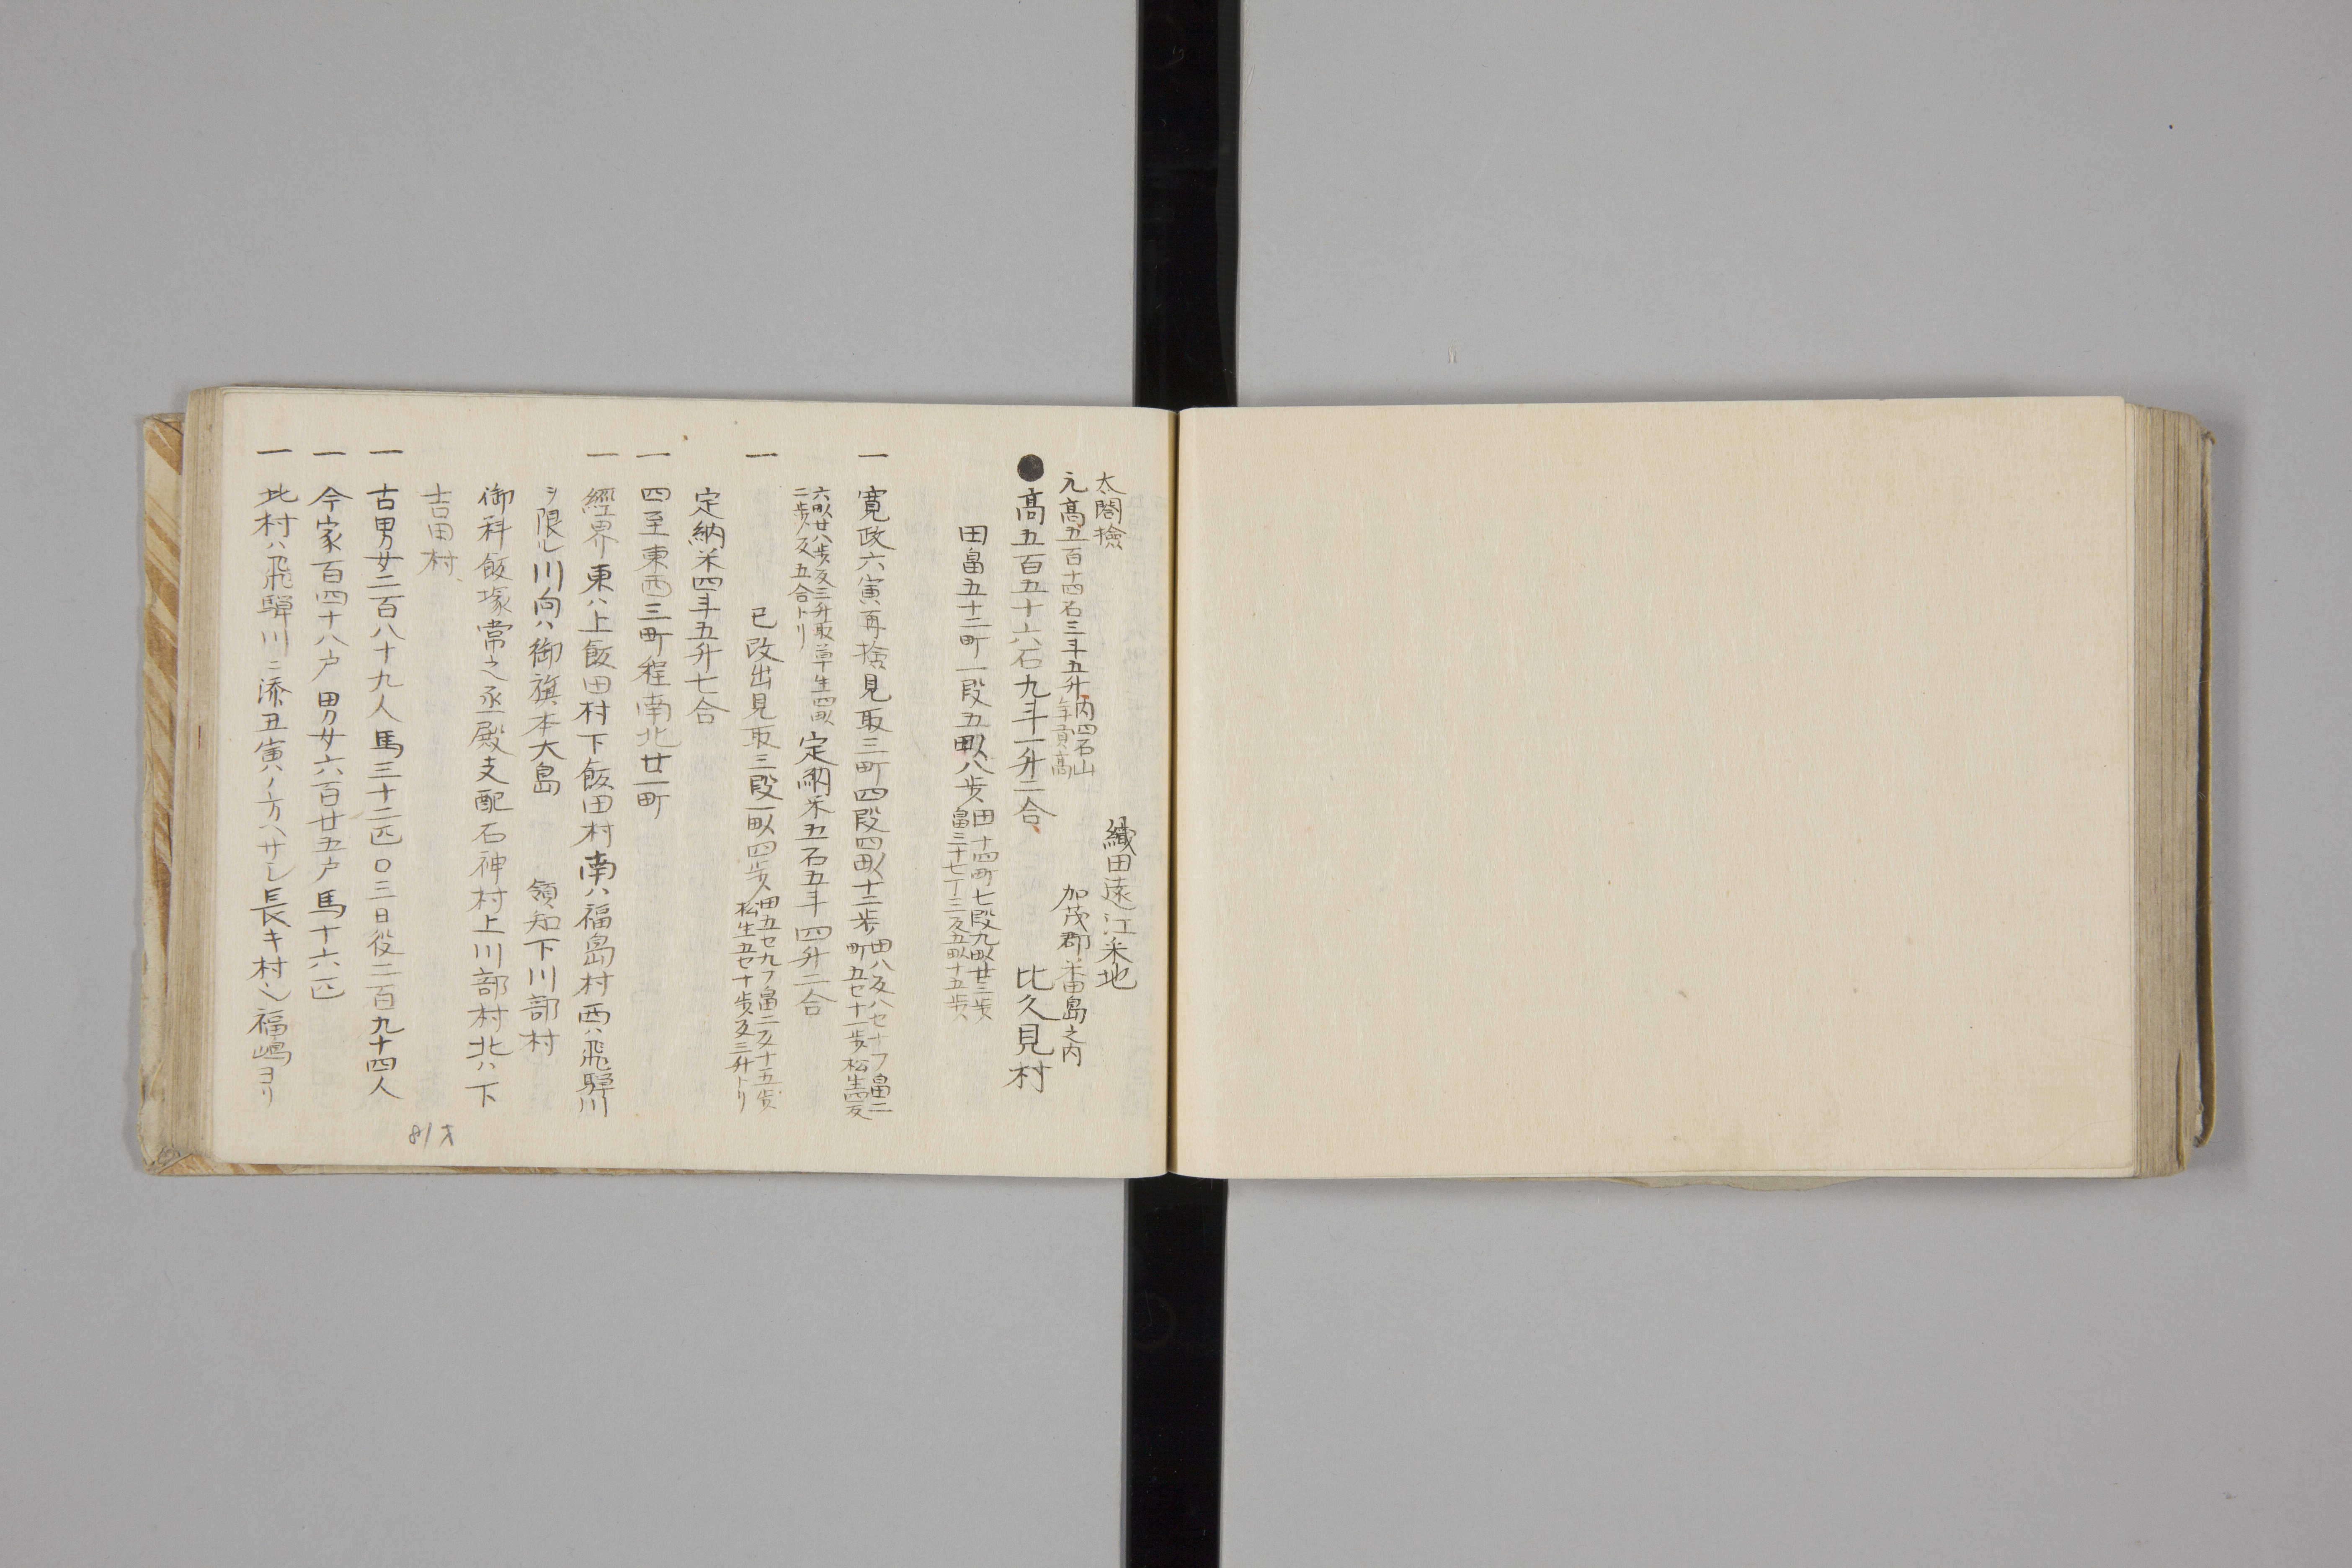 太閤撿
織田遠江釆地
元髙五百十四石三斗五升内四石山
年貢髙
加茂郡米田島之内
●髙五百五十六石九斗一升二合
比久見村
田畠五十二町一段五畝八歩田十四町七段九畝廿三歩
畠三十七丁三反五畝十五歩
一 寛政六寅再撿見取三町四段四畝十二歩田八反八セ十フ畠二
町五セ十一歩松生四反
六畝廿八歩反三升取草生四畝
二歩反五合トリ
定納米五石五斗四升二合
一 巳改出見取三段一畝四歩田五セ九フ畠二反十五歩
松生五セ十歩反三升トリ
定納米四斗五升七合
一 四至東西三町程南北廿一町
一 經界東ハ上飯田村下飯田村南ハ福島村西ハ飛驒川
ヲ限ル川向ハ御旗本大島 領知下川部村
御科飯塚常之丞殿支配石神村上川部村北ハ下
吉田村
一 古男女二百八十九人馬三十二匹〇三日役二百九十四人
一 今家百四十八戸男女六百廿五戸馬十六匹
一 此村ハ飛驒川ニ添丑寅ノ方ヘサシ長キ村也福嶋ヨリ
81才